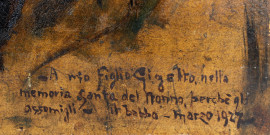 A mio figlio Gigetto, nella
memoria Santa del Nonno, perchè gli
assomigli - Il babbo - Marzo 1927